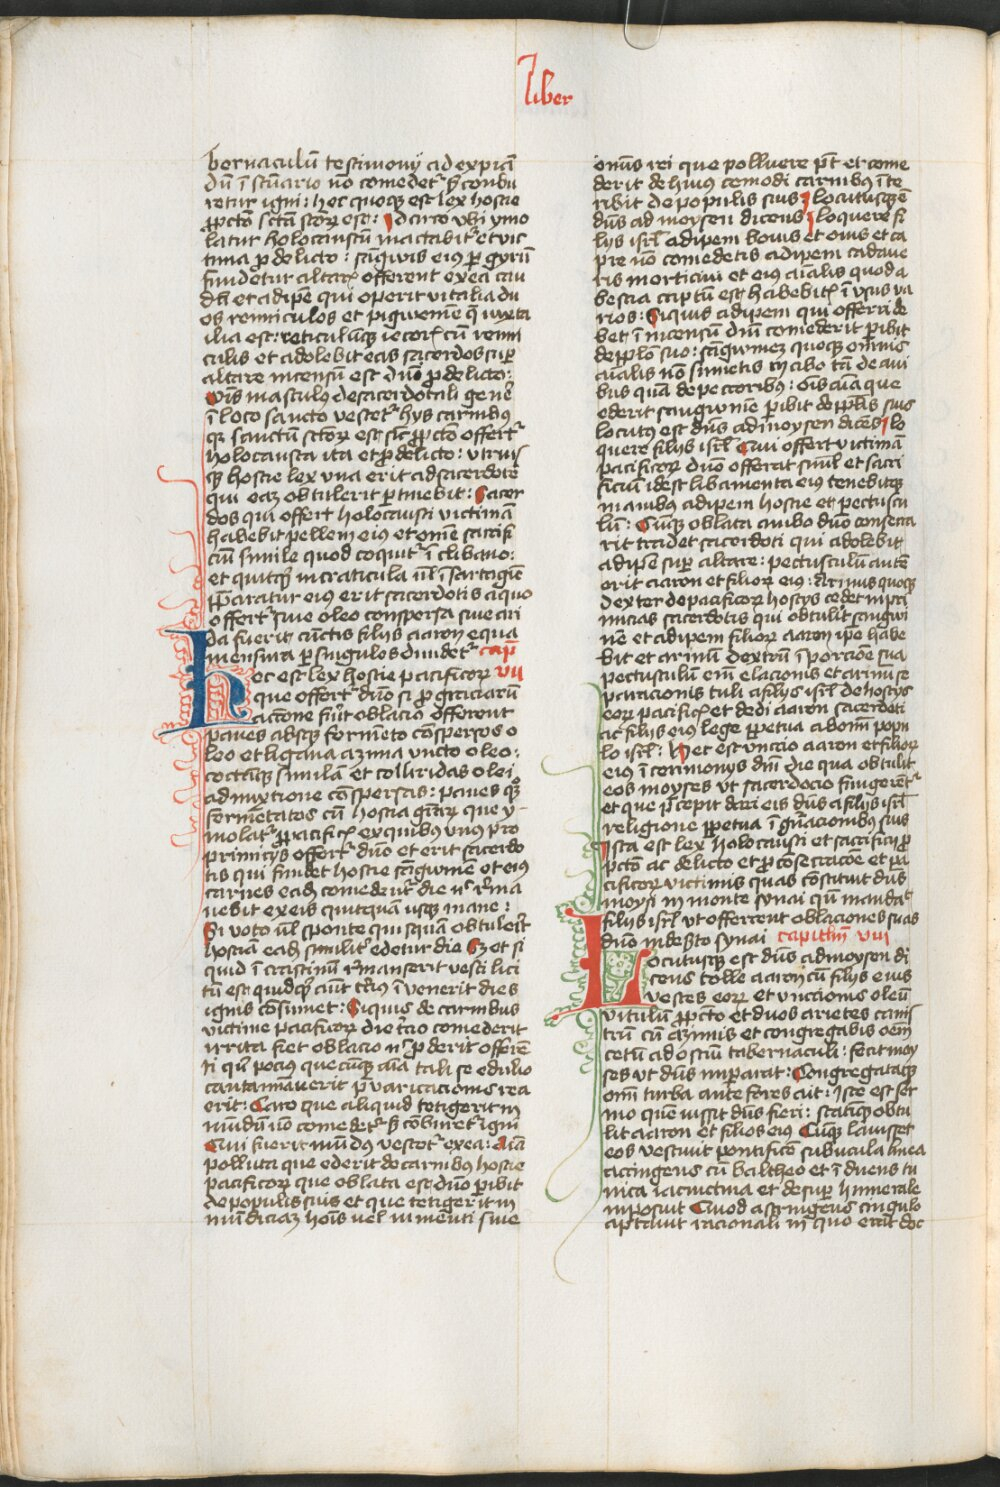 Liber
bernaculū testimonij ad expian
dū ī scūario nō comedet᷑ sꝫ conbu
retur igni: hec quoqꝫ est lex hostie
ꝓ pctō scta sctoꝝ est: Idcirco vbi ymo
latur holocaustū mactabit᷑ et vic
tima ꝓ delicto: sāgwis eius ꝑ gyrū
fundetur altaris offerent ex ea cau
dā et adipē qui operit vitalia du
os renniculos et pigwenīe q̄ iuxta
ilia est: reticulūqꝫ iecoris cū renni
culis et adolebit eas sacerdos suꝑ
altare incensū est dn̄o ꝓ delicto:
Om̄is masculus de sacerdotali gene
ī loco sancto vescet᷑ hys carnibꝰ
qꝛ sanctū sctoꝝ est sic ꝓ pctō offert᷑
holocausta ita et ꝓ delicto: vtrius
qꝫ hostie lex vna erit ad sacerdotē
qui eaꝫ obtulerit ꝑtinebit: Sacer
dos qui offert holocausti victimā
habebit pellem eiꝰ et om̄e sacrifi
ciū simile quod coquit᷑ ī clibano:
et quitqꝫ in craticula ul̄ ī sartagīe
p̄paratur eius erit sacerdotis a quo
offert᷑ siue oleo conspersa siue ari
da fuerit cūctis filijs aaron equa
mensura ꝑ singulos diuidet᷑ cap̄
vii
hec est lex hostie pacificoꝝ
que offert᷑ dn̄o si ꝓ graciarū
accione fūit oblacio offerent
panes absqꝫ formēto cōspersos o
leo et ligana azima vncto oleo:
coctāqꝫ similā et colliridas olei
admixtione cōspersas: panes qꝫ
fermētatos cū hostia gr̄aꝝ que y
molat᷑ ꝓ pacificis ex quibus vnus pro
primicijs offert᷑ dn̄o et erit sacerdo
tis qui fundet hostie sāgwinē et eiꝰ
carnes eadē comedent᷑ die nͨ r̄ma
nebit ex eis quitquā usqꝫ mane:
Si voto ul̄ sponte quispiam obtulerit
hostiā eadē similit᷑ edetur die Sꝫ et si
quid ī crastinū r̄manserit vesci lici
tū est quidqꝫ aūt t̄ciꝰ īvenerit dies
ignis cōsumet: Siquis de carnibus
victime pacificoꝝ die t̄cio comederit
irrita fiet oblacio nͨ ꝓderit offerē
ti qn̄ pocius quecūqꝫ aīa tali se edulio
contaminauerit p̄varicacionis rea
erit: Caro que aliquid tetigerit in
mūdū nō comedet᷑ sꝫ cōburet᷑ igni
Qui fuerit mūdꝰ vescet᷑ ex ea: Aīa
polluta que ederit de carnibꝰ hostie
pacificoꝝ que oblata est dn̄o ꝑibit
de populis suis et que tetigerit in
mūdiciaꝫ hoīs vel iumenti siue
omīs rei que polluere pt̄ et come
derit de huius cemodi carnibꝰ īte
ribit de populis suis locutusqꝫ ē
dn̄s ad moysen dicens loquere fi
lijs isrl̄ adipem bouis et ouis et ca
pre nō comedetis adipem cadaue
ris morticini et eiꝰ aīalis quod a
bestia captū est habebitis ī vsus va
rios: Siquis adipem qui offerri de
bet ī incensū dn̄i comederit ꝑibit
de ppl̄o suo: sāgwineꝫ quoqꝫ omīs
aīalis nō sumetis in cibo tā de aui
bus quā de pecoribus: om̄is aīa que
ederit sangwinē ꝑibit de ppl̄is suis
locutus est dn̄s ad moysen dicēs lo
quere filijs isrl̄ Qui offert victimā
pacificoꝝ dn̄o offerat simul et sacri
ficiū idest libamenta eiꝰ tenebitqꝫ
manibꝰ adipem hostie et pectuscu
lū: Cūqꝫ oblata ambo dn̄o consecra
rit tradet sacerdoti qui adolebit
adipē suꝑ altare: pectusculū autē
erit aaron et filioꝝ eiꝰ: Armus quoqꝫ
dexter de pacificoꝝ hostijs cedet in pri
micias sacerdotis qui obtulit sangwi
nē et adipem filioꝝ aaron ipe habe
bit et armū dextrū ī porcioē sua
pectusculū em̄ elacionis et armū se
paracionis tuli a filijs isrl̄ de hostijs
eoꝝ pacificis et dedi aaron sacerdoti
ac filijs eiꝰ lege ꝑpetua ab om̄i popu
lo isrl̄: hec est unccio aaron et filioꝝ
eiꝰ ī cerimonijs dn̄i die qua obtulit
eos moyses vt sacerdocio fungerent᷑
et que p̄cepit dari eis dn̄s a filijs isrl̄
religione ꝑpetua ī gn̄acionibus suis
Ista est lex holocausti et sacrificij ꝓ
pctō ac delicto et ꝓ cōsecracōe et pa
cificoꝝ victimis quas cōstituit dn̄s
moysi in monte synai qn̄ mandaꝰ
filijs isrl̄ ut offerrent oblaciones suas
dn̄o in desto synai capitlm̄ viii
Locutusqꝫ est dn̄s ad moysen di
cens tolle aaron cū filijs eius
vestes eoꝝ et vnccionis oleū
vitulū ꝓ pctō et duos arietes canis
trū cū azimis et congregabis oēm
cetū ad ostiū tabernaculi: fecit moy
ses vt dn̄s imperarat: Congregataqꝫ
om̄i turba ante fores ait: Iste est ser
mo quē iussit dn̄s fieri: statimqꝫ obtu
lit aaron et filios eiꝰ Cūqꝫ lavisset
eos vestiuit pontificē subucula linea
accingens cū baltheo et īduens tu
nica iacinctina et desuꝑ hummerale
imposuit Quod astringens cingulo
aptauit racionali in quo erat doc